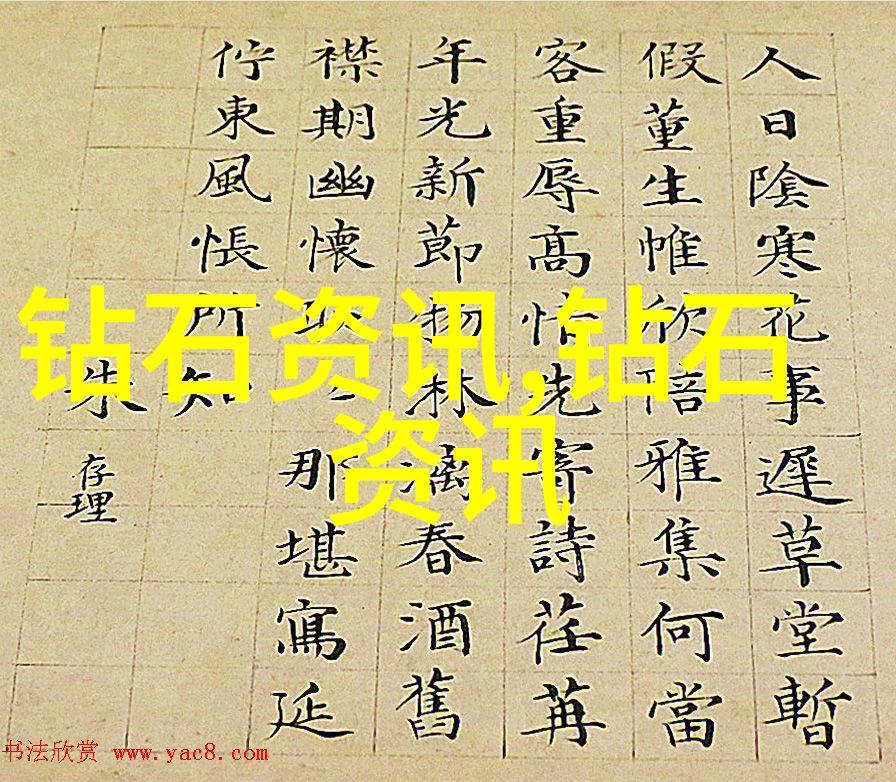 钻石资讯,钻石
资讯
人日陰寒花事遲草堂暫
假董生帷欣陪雅集何當
客重辱高情先寄詩荏苒
年光新節物林漓春酒舊
襟期幽懷那堪寫延
佇東風悵所知
朱存理
书法欣赏 www.yac8.com